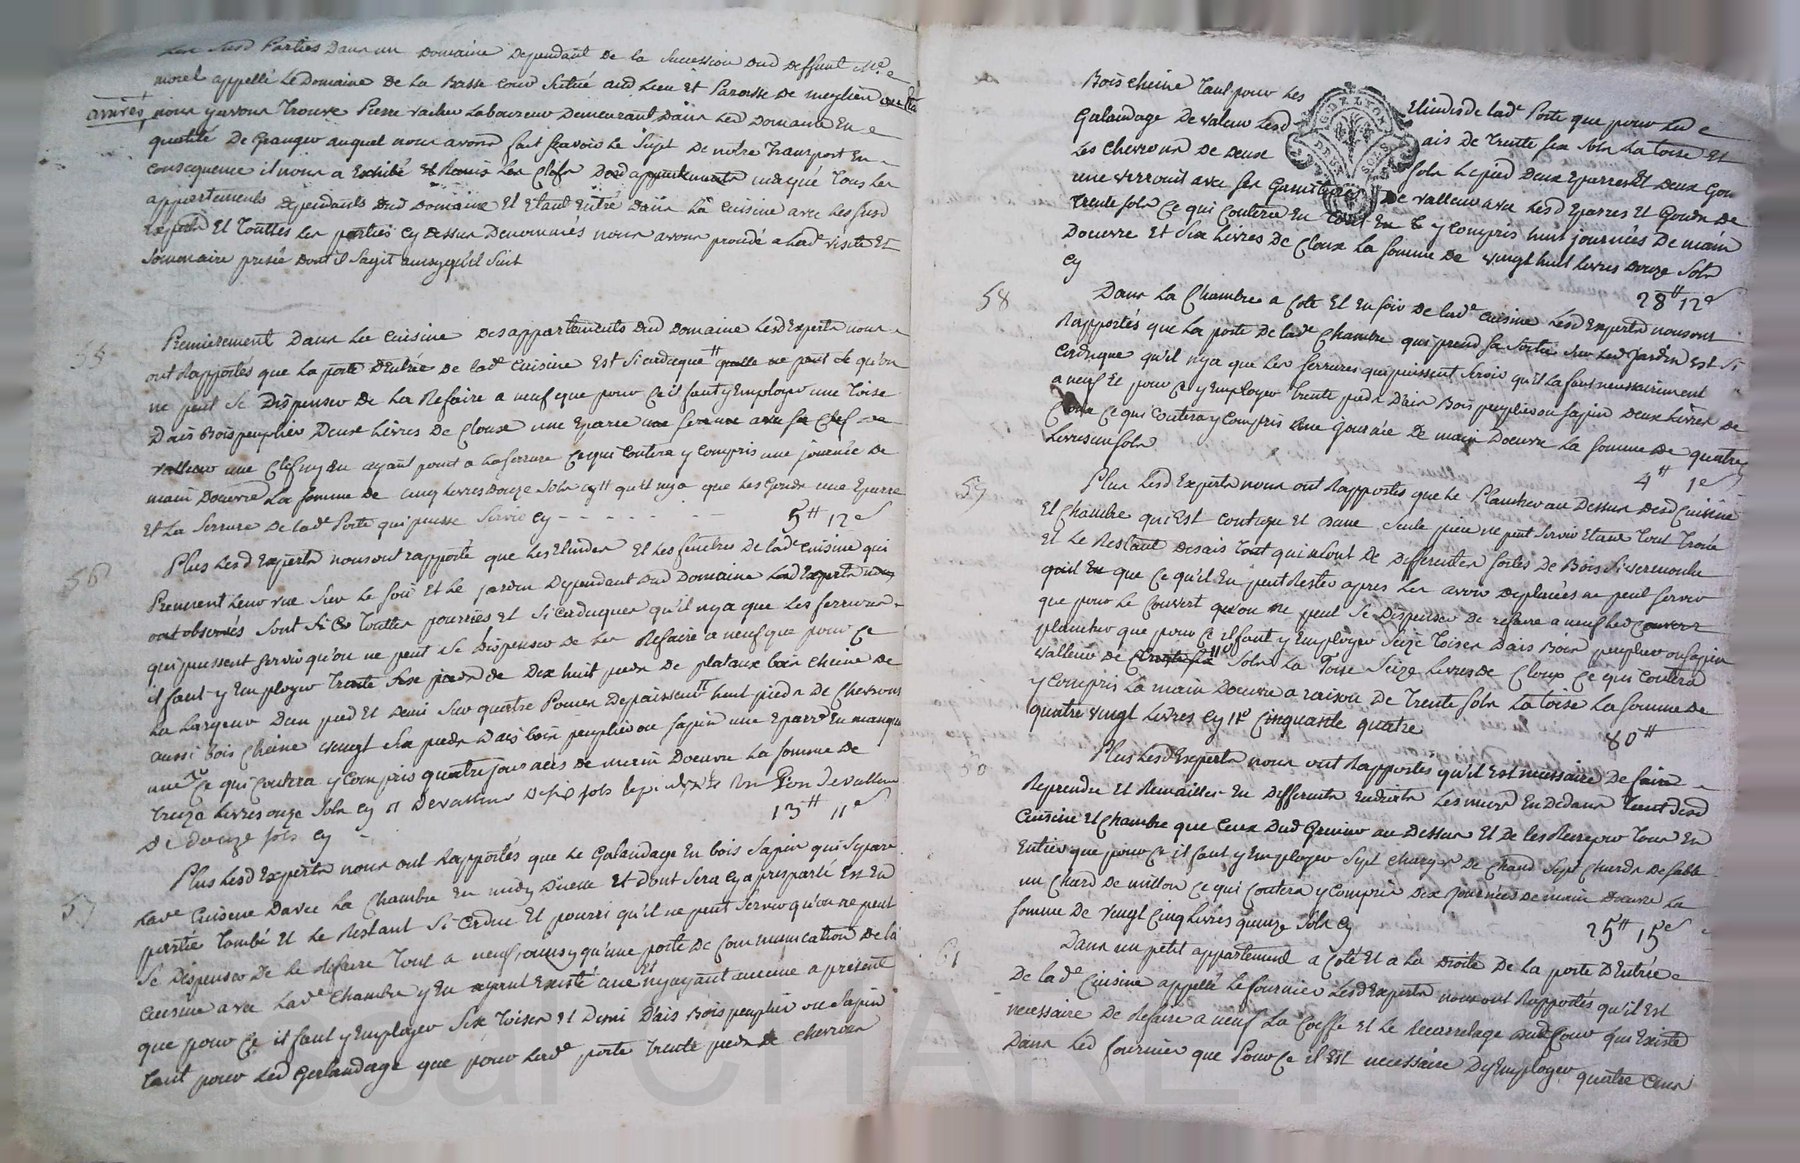 Les susd Parties dans un Domaine Dependant de la Succession dud deffunt Me
morel appellé Le Domaine de La Basse cour Situé aud Lieu et Paroisse de meylieu
arrivés nous y avons Trouvé Pierre vacher Laboureur Demeurant Dans Led Domaine En
qualité De Granger auquel nous avons fait scavoir Le Sujet De notre Transport En
consequence il nous a Exhibé et Remis Les Clefs Desd appartements indiqué Tous Les
appartements Dependants Dud Domaine Et Etant Entré Dans La Cuisine avec Les susd
Experts Et Touttes Les parties cy dessus Denommés nous avons procédé a Lade visite Et
Sommaire prisée Dont il Sagit ainsy qu'il Suit
55
Premierement Dans La Cuisine Des appartements Dud Domaine Lesd Experts nous
ont Rapportés que La porte D'Entrée de lade Cuisine Est Si caducque quelle ne peut qu'on
ne peut Se Dispenser De La Refaire a neuf que pour Ce il faut y Employer une Toise
Dais Bois peuplier Deux Livres De Cloux une Eparre une serrure avec sa Clef de
valleur une Clef ny En ayant point a la serrure Ce qui Coutera y Compris une journée de
main Doeuvre La Somme de cinq Livres Douze Sols cy qu'il n'y a que Les Gonds une Eparre
Et La Serrure De lade Porte qui puisse Servir Cy - - - - - - 5# 12s
56
Plus Lesd Experts nous ont rapporté que Les Elindes Et Les fenêtres De lade Cuisine qui
Prennent Leur vue Sur Le Soir Et Le jardin Dependant Dud Domaine Lesd Experts nous
ont observés Sont Si Touttes pourries et Si Caduques qu'il n'y a que Les ferrures
qui puissent Servir qu'on ne peut Se Dispenser De Les Refaire a neuf que pour Ce
il faut y Employer Trente Six pieds de Dix huit pieds De plateaux bois chêne De
La Largeur D'un pied Et Demi Sur quatre Pouces Depaisseur huit pieds De Chevrons
aussi Bois Chêne vingt Six pieds Dais bois peuplier ou sapin une Eparre En manque
une Ce qui Coutera y Compris quatre journées de main Doeuvre La Somme De
Treize Livres onze Sols Cy De valleur De six sols le pied un Gon de valleur
De Douze sols Cy 13# 11s
57
Plus Lesd Experts nous ont Rapportés que Le Galandage En bois Sapin qui Separe
Lade Cuisine Davec La Chambre En midy D'icelle Et dont Sera cy apres parlé Est En
partie Tombé Et Le Restant Si Caduc Et pourri qu'il ne peut Servir qu'on ne peut
Se Dispenser De Le Refaire Tout a neuf ainsy qu'une porte De Communication De la
Cuisine avec Lade Chambre y En ayant Existé une Et n'y ayant aucune a présent
que pour Ce il faut y Employer Six Toises Et Demi Dais Bois peuplier ou Sapin
Tant pour Led Galandage que pour Lade porte Trente pieds de chevron
Bois cheine Tant pour Les Elindes de lade Porte que pour Led
Galandage De valeur Lesd ais De Trente six Sols La Toise Et
Les Chevrons De Deux Sols Le pied Deux Eparres Et Deux Gons
une verrouil avec ses Garnitures De valleur avec Lesd Eparres Et Gonds De
Trente Sols Ce qui Coutera En Tout En y Compris huit journées De main
Doeuvre Et Six Livres De Cloux La somme De vingt huit Livres Douze Sols
Cy 28# 12s
58
Dans La Chambre a Coté Et En soir De lade Cuisine Lesd Experts nous ont
Rapportés que La porte De lade Chambre qui prend sa Sortie Sur Led Jardin Est Si
Caduque qu'il n'y a que Les ferrures qui puissent Servir qu'il La faut necessairement
a neuf Et pour Ce y Employer Trente pieds D'ais Bois peuplier ou sapin Deux Livres De
Cloux Ce qui Coutera y Compris une Journée De main Doeuvre La somme De quatre
Livres un Sols 4# 1s
59
Plus Lesd Experts nous ont Rapportés que Le Plancher au Dessus Desd Cuisine
Et Chambre qui Est contigu Et dune Seule piece ne peut Servir Etant Tout Troué
Et Le Restant Desais Tout qui Sont De Differentes Sortes De Bois Si vermoulu
que Ce qu'il En peut Rester apres Les avoir Deplacées ne peut Servir
que pour Le Couvert qu'on ne peut Se Dispenser De refaire a neuf Led
plancher que pour Ce il faut y Employer Seize Toises Dais Bois peuplier ou sapin
valleur de Sols La Toise Seize Livres De Cloux Ce qui Coutera
y Compris La main Doeuvre a raison De Trente Sols La Toise La Somme De
quatre vingt Livres Cy Cinquante quatre 80#
60
Plus Lesd Experts nous ont Rapportés qu'il Est necessaire De faire
Reprendre Et Remailler En Differents Endroits Les murs En Dedans Tant Desd
Cuisine Et Chambre que Ceux Dud Grenier au Dessus Et De les Recrepir Tous En
Entier que pour Ce il faut y Employer Sept charges De Chaud Sept Chards De sable
un Chard De millon Ce qui Coutera y Compris Dix Journées De main Doeuvre La
somme De vingt Cinq Livres quinze Sols Cy 25# 15s
61
Dans un petit appartement a Coté Et a La Droite De La porte D'Entrée
De lade Cuisine appellé Le fournier Lesd Experts nous ont Rapportés qu'il Est
necessaire De Refaire a neuf La Coeffe Et Le Carrelage dud Four qui Existe
Dans Led fournier que Pour Ce il Est necessaire Dy Employer quatre Cens